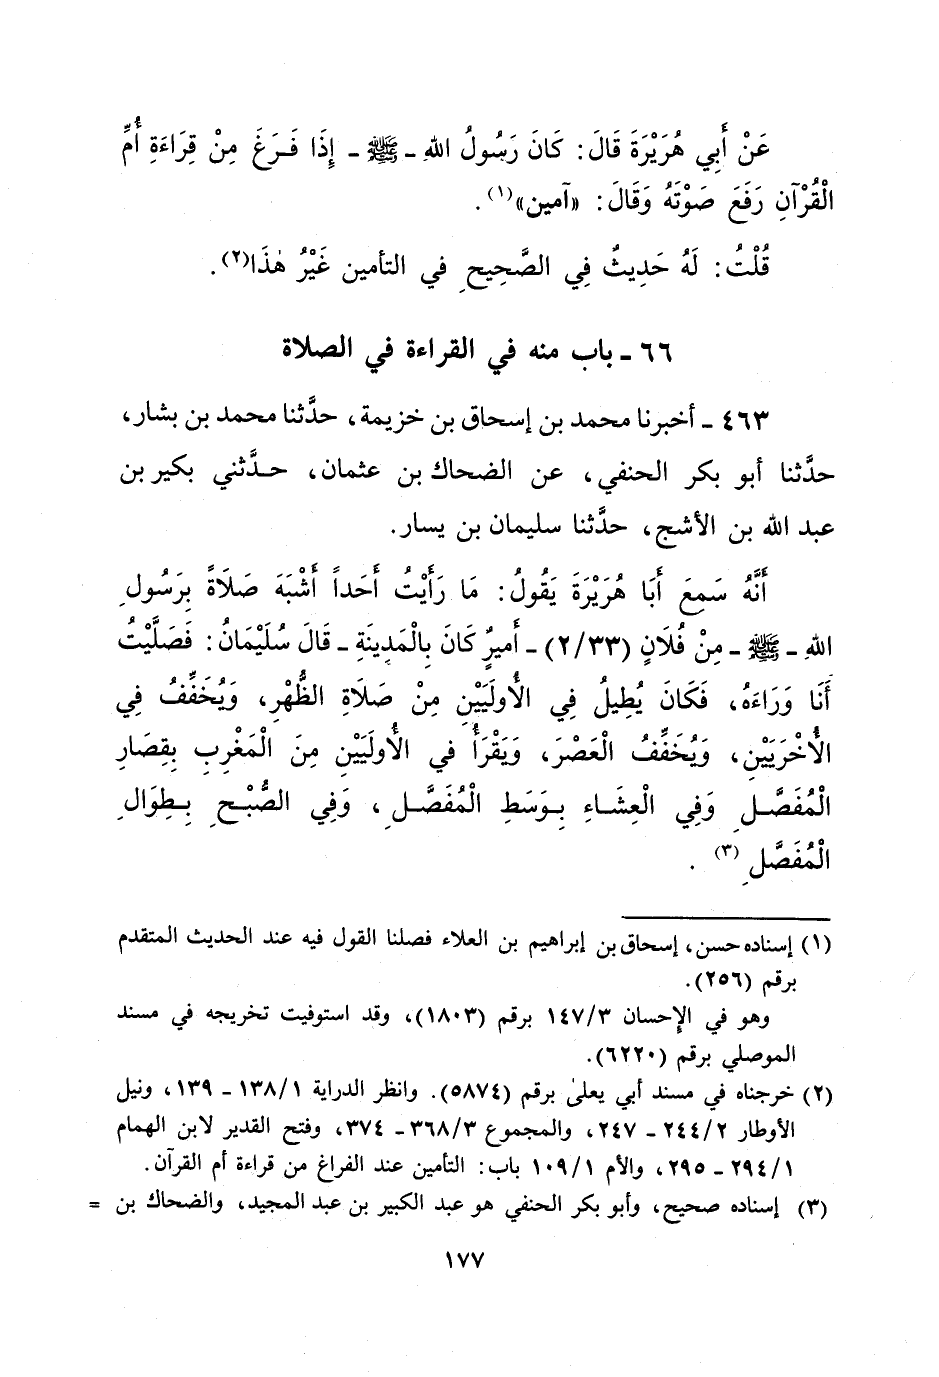 عَنْ أَبِي هُرَيْرَةَ قَالَ: كَانَ رَسُولُ اللهِ ـ ﷺ ـ إِذَا فَـرَغَ مِنْ قِرَاءَةِ أُمِّ
الْقُرْآنِ رَفَعَ صَوْتَهُ وَقَالَ: «آمين»(١).
قُلْتُ: لَهُ حَدِيثٌ فِي الصَّحِيحِ في التأمين غَيْرُ هٰذَا(٢).
٦٦ ـ باب منه في القراءة في الصلاة
٤٦٣ ـ أخبرنا محمد بن إسحاق بن خزيمة، حدَّثنا محمد بن بشار،
حدَّثنا أبو بكر الحنفي، عن الضحاك بن عثمان، حـدَّثني بكير بن
عبد الله بن الأشج، حدَّثنا سليمان بن يسار.
أَنَّهُ سَمِعَ أَبَا هُرَيْرَةَ يَقُولُ: مَا رَأَيْتُ أَحَداً أَشْبَهَ صَلَاةً بِرَسُولِ
اللهِ ـ ﷺ ـ مِنْ فُلَانٍ (٢/٣٣) ـ أَمِيرٌ كَانَ بِالْمَدِينَةِ ـ قَالَ سُلَيْمَانُ: فَصَلَّيْتُ
أَنَا وَرَاءَهُ، فَكَانَ يُطِيلُ فِي الْأُولَيَيْنِ مِنْ صَلَاةِ الظُّهْرِ، وَيُخَفِّفُ فِي
الْأُخْرَيَيْنِ، وَيُخَفِّفُ الْعَصْرَ، وَيَقْرَأُ في الْأُولَيَيْنِ مِنَ الْمَغْرِبِ بِقِصَارِ
الْمُفَصَّلِ وَفِي الْعِشَاءِ بِوَسَطِ الْمُفَصَّلِ، وَفِي الصُّبْحِ بِطِوَالِ
الْمُفَصَّلِ(٣).
(١) إسناده حسن، إسحاق بن إبراهيم بن العلاء فصلنا القول فيه عند الحديث المتقدم
برقم (٢٥٦).
وهو في الإحسان ١٤٧/٣ برقم (١٨٠٣)، وقد استوفيت تخريجه في مسند
الموصلي برقم (٦٢٢٠).
(٢) خرجناه في مسند أبي يعلىٰ برقم (٥٨٧٤). وانظر الدراية ١٣٨/١ ـ ١٣٩، ونيل
الأوطار ٢٤٤/٢ ـ ٢٤٧، والمجموع ٣٦٨/٣ ـ ٣٧٤، وفتح القدير لابن الهمام
٢٩٤/١ ـ ٢٩٥، والأم ١٠٩/١ باب: التأمين عند الفراغ من قراءة أم القرآن.
(٣) إسناده صحيح، وأبو بكر الحنفي هو عبد الكبير بن عبد المجيد، والضحاك بن =
١٧٧